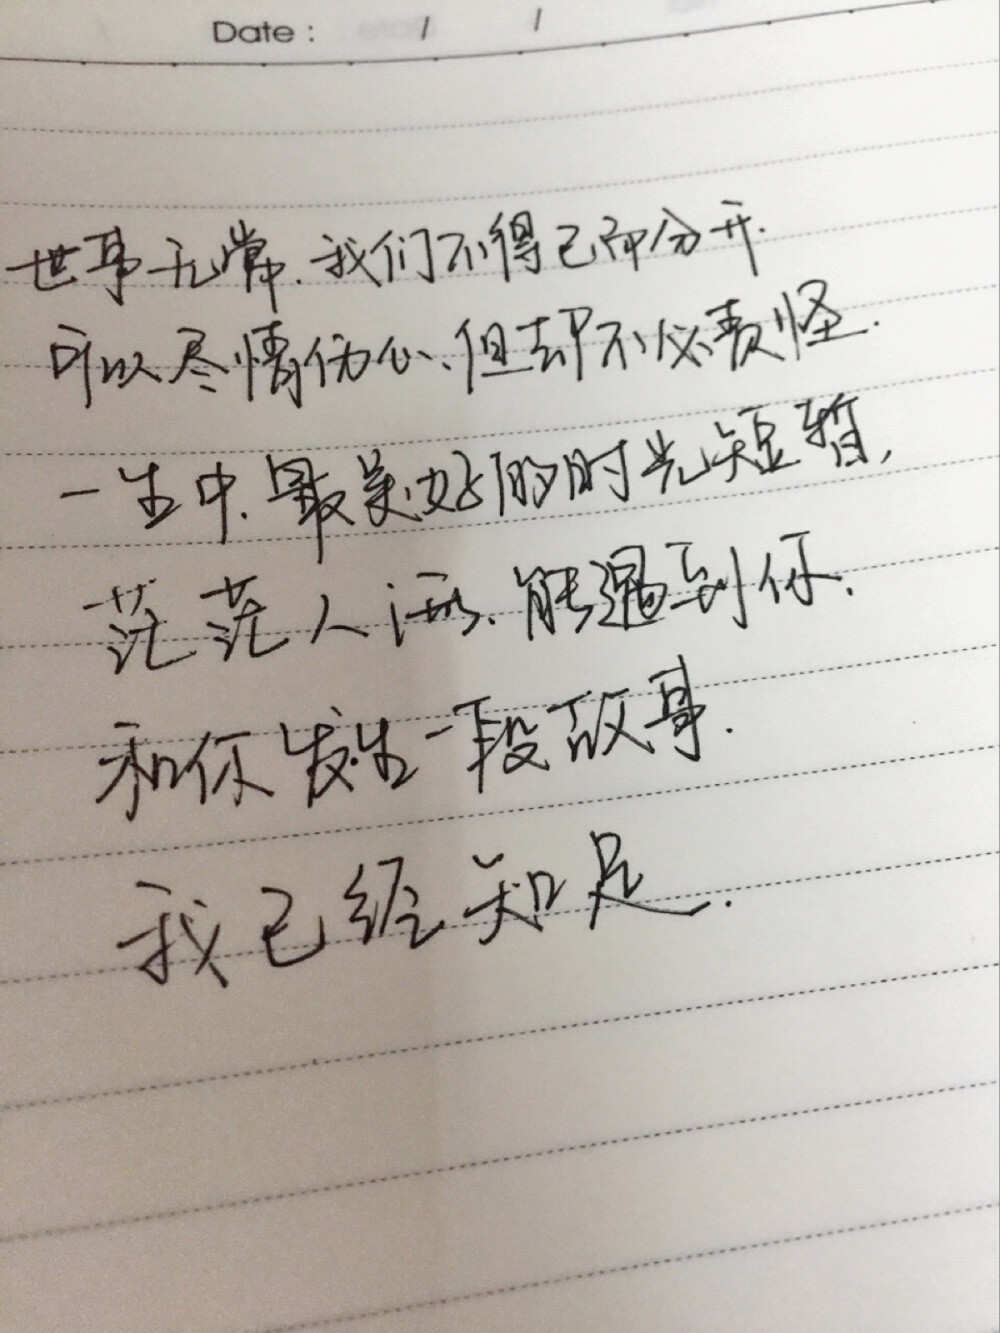 Date :    /    /
世事无常.我们不得已而分开.
可以尽情伤心、但却不必责怪.
一生中.最美好的时光短暂,
茫茫人海.能遇到你.
和你发生一段故事.
我已经知足.